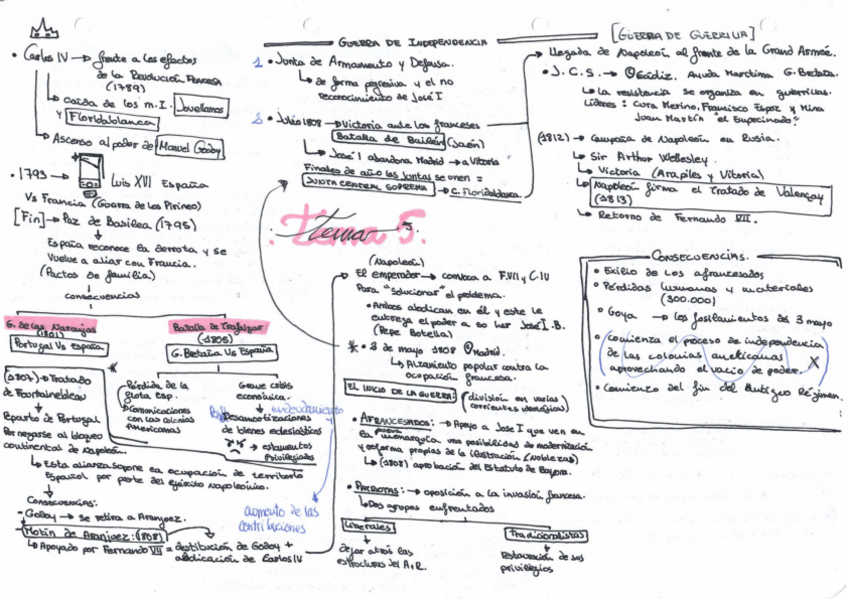 • Carlos IV → frente a los efectos
de la Revolución Francesa
(1789)
↳ Caída de los m.I. Jovellanos
y Floridablanca
↳ Ascenso al poder de Manuel Godoy
• 1793 →
Luis XVI España
Vs Francia (Guerra de los Pirineo)
[Fin] → Paz de Basilea (1795)
España reconoce la derrota y se
vuelve a aliar con Francia.
(Pactos de familia)
consecuencias
G. de las Naranjas
(1801)
Portugal Vs España
Batalla de Trafalgar
(1805)
G. Bretaña Vs España
(1807) → Tratado
de Fontainebleau
Reparto de Portugal
Por negarse al bloqueo
continental de Napoleón.
Pérdida de la
flota Esp.
Comunicaciones
con las colonias
Americanas
Grave crisis
económica.
endeudamiento
Desamortizaciones
de bienes eclesiásticos
→ estamentos
Privilegiados
↳ Esta alianza supone la ocupación de territorio
Español por parte del ejército Napoleónico.
Consecuencias:
- Godoy → se retira a Aranjuez.
Motín de Aranjuez: (1808)
↳ Apoyado por Fernando VII = destitución de Godoy +
abdicación de Carlos IV
aumento de las
contribuciones
GUERRA DE INDEPENDENCIA
1 • Junta de Armamento y Defensa.
↳ de forma progresiva y el no
reconocimiento de José I
2 • Julio 1808 → Victoria ante los franceses
Batalla de Bailén (Jaén)
↳ José I abandona Madrid → a Vitoria
Finales de año las juntas se unen =
JUNTA CENTRAL SUPREMA → C. Floridablanca
tema 5.
(Napoleón)
El emperador → convoca a F.VII y C.IV
Para "solucionar" el problema.
• Ambos abdican en él y este le
entrega el poder a su her José I. B.
(Pepe Botella)
* • 2 de mayo 1808 Madrid.
↳ Alzamiento popular contra la
ocupación francesa.
EL INICIO DE LA GUERRA: (división en varias
corrientes ideológicas)
• AFRANCESADOS: → Apoyo a José I que ven en
la nueva monarquía una posibilidad de modernización
y reforma propias de la ilustración (nobleza)
↳ (1808) aprobación del Estatuto de Bayona.
• PATRIOTAS: → oposición a la invasión francesa.
↳ Dos grupos enfrentados
Liberales
dejar atrás las
estructuras del A.R.
Tradicionalistas
Restauración de sus
privilegios
[GUERRA DE GUERRILLA]
→ Llegada de Napoleón al frente de la Grand Armeé.
• J.C.S. → Cádiz. Ayuda Marítima G. Bretaña.
↳ La resistencia se organiza en guerrillas.
Líderes: Cura Merino, Francisco Espoz y Mina
Juan Martín "el Empecinado".
(1812) → Campaña de Napoleón en Rusia.
↳ Sir Arthur Wellesley.
↳ Victoria (Arapiles y Vitoria)
↳ Napoleón firma el Tratado de Valençay
(1813)
↳ Retorno de Fernando VII.
CONSECUENCIAS.
• Exilio de los afrancesados
• Pérdidas humanas y materiales
(300.000)
• Goya → los fusilamientos del 3 mayo
• comienza el proceso de independencia
de las colonias americanas
aprovechando el vacío de poder. X
• Comienzo del fin del Antiguo Régimen.